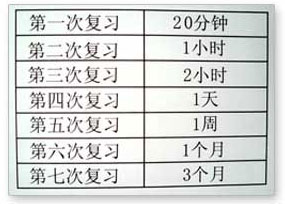 第一次复习 20分钟
第二次复习 1小时
第三次复习 2小时
第四次复习 1天
第五次复习 1周
第六次复习 1个月
第七次复习 3个月